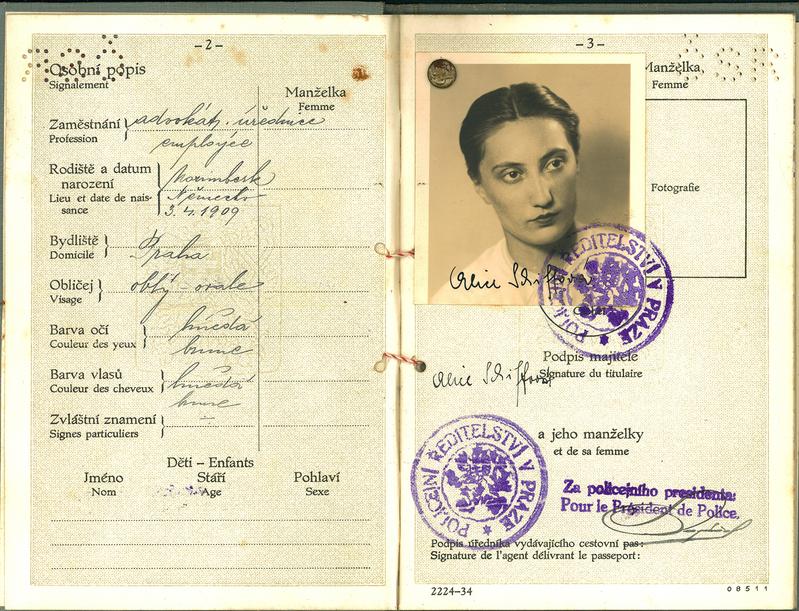 –2–
Osobní popis
Signalement
Manželka
Femme
Zaměstnání
Profession
advokát. úřednice
employée
Rodiště a datum
narození
Lieu et date de nais-
sance
Norimberk
Německo
3.4.1909
Bydliště
Domicile
Praha
Obličej
Visage
oblý - ovale
Barva očí
Couleur des yeux
hnědá
brune
Barva vlasů
Couleur des cheveux
hnědá
brune
Zvláštní znamení
Signes particuliers
Děti – Enfants
Jméno
Nom
Stáří
Age
Pohlaví
Sexe
–3–
ČSR
Manželka
Femme
Fotografie
Alice Schiffová
POLICEJNÍ ŘEDITELSTVÍ V PRAZE
Podpis majitele
Signature du titulaire
Alice Schiffová
a jeho manželky
et de sa femme
POLICEJNÍ ŘEDITELSTVÍ V PRAZE
Za policejního presidenta:
Pour le Président de Police.
Podpis úředníka vydávajícího cestovní pas:
Signature de l'agent délivrant le passeport:
2224–34
08511